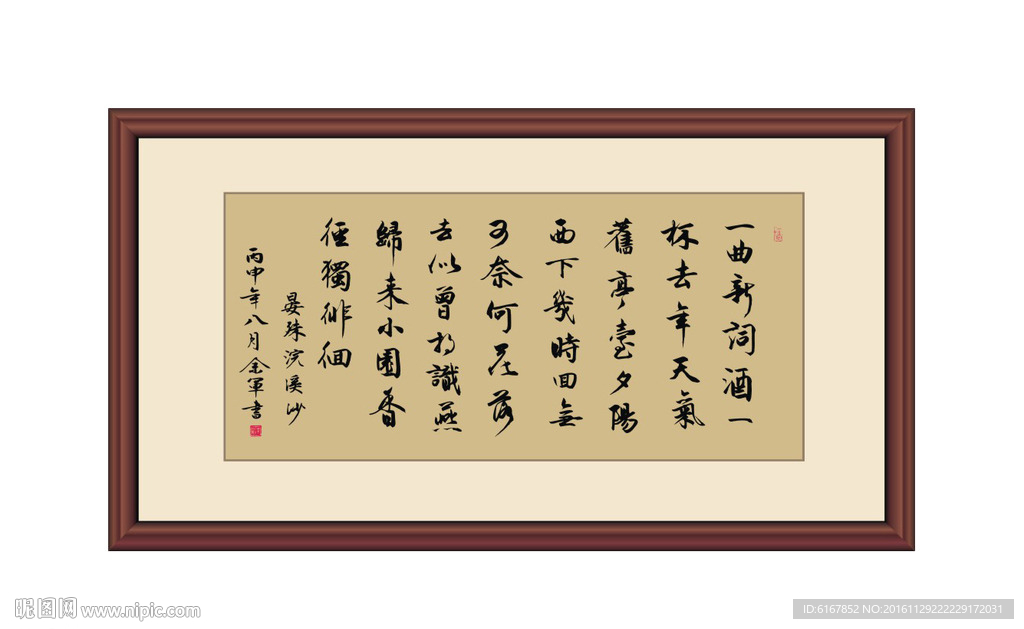 一曲新詞酒一
杯去年天氣
舊亭臺夕陽
西下幾時回無
可奈何花落
去似曾相識燕
歸来小園香
徑獨徘徊
晏殊浣溪沙
丙申年八月金軍书
昵图网 www.nipic.com
ID:6167852 NO:20161129222229172031